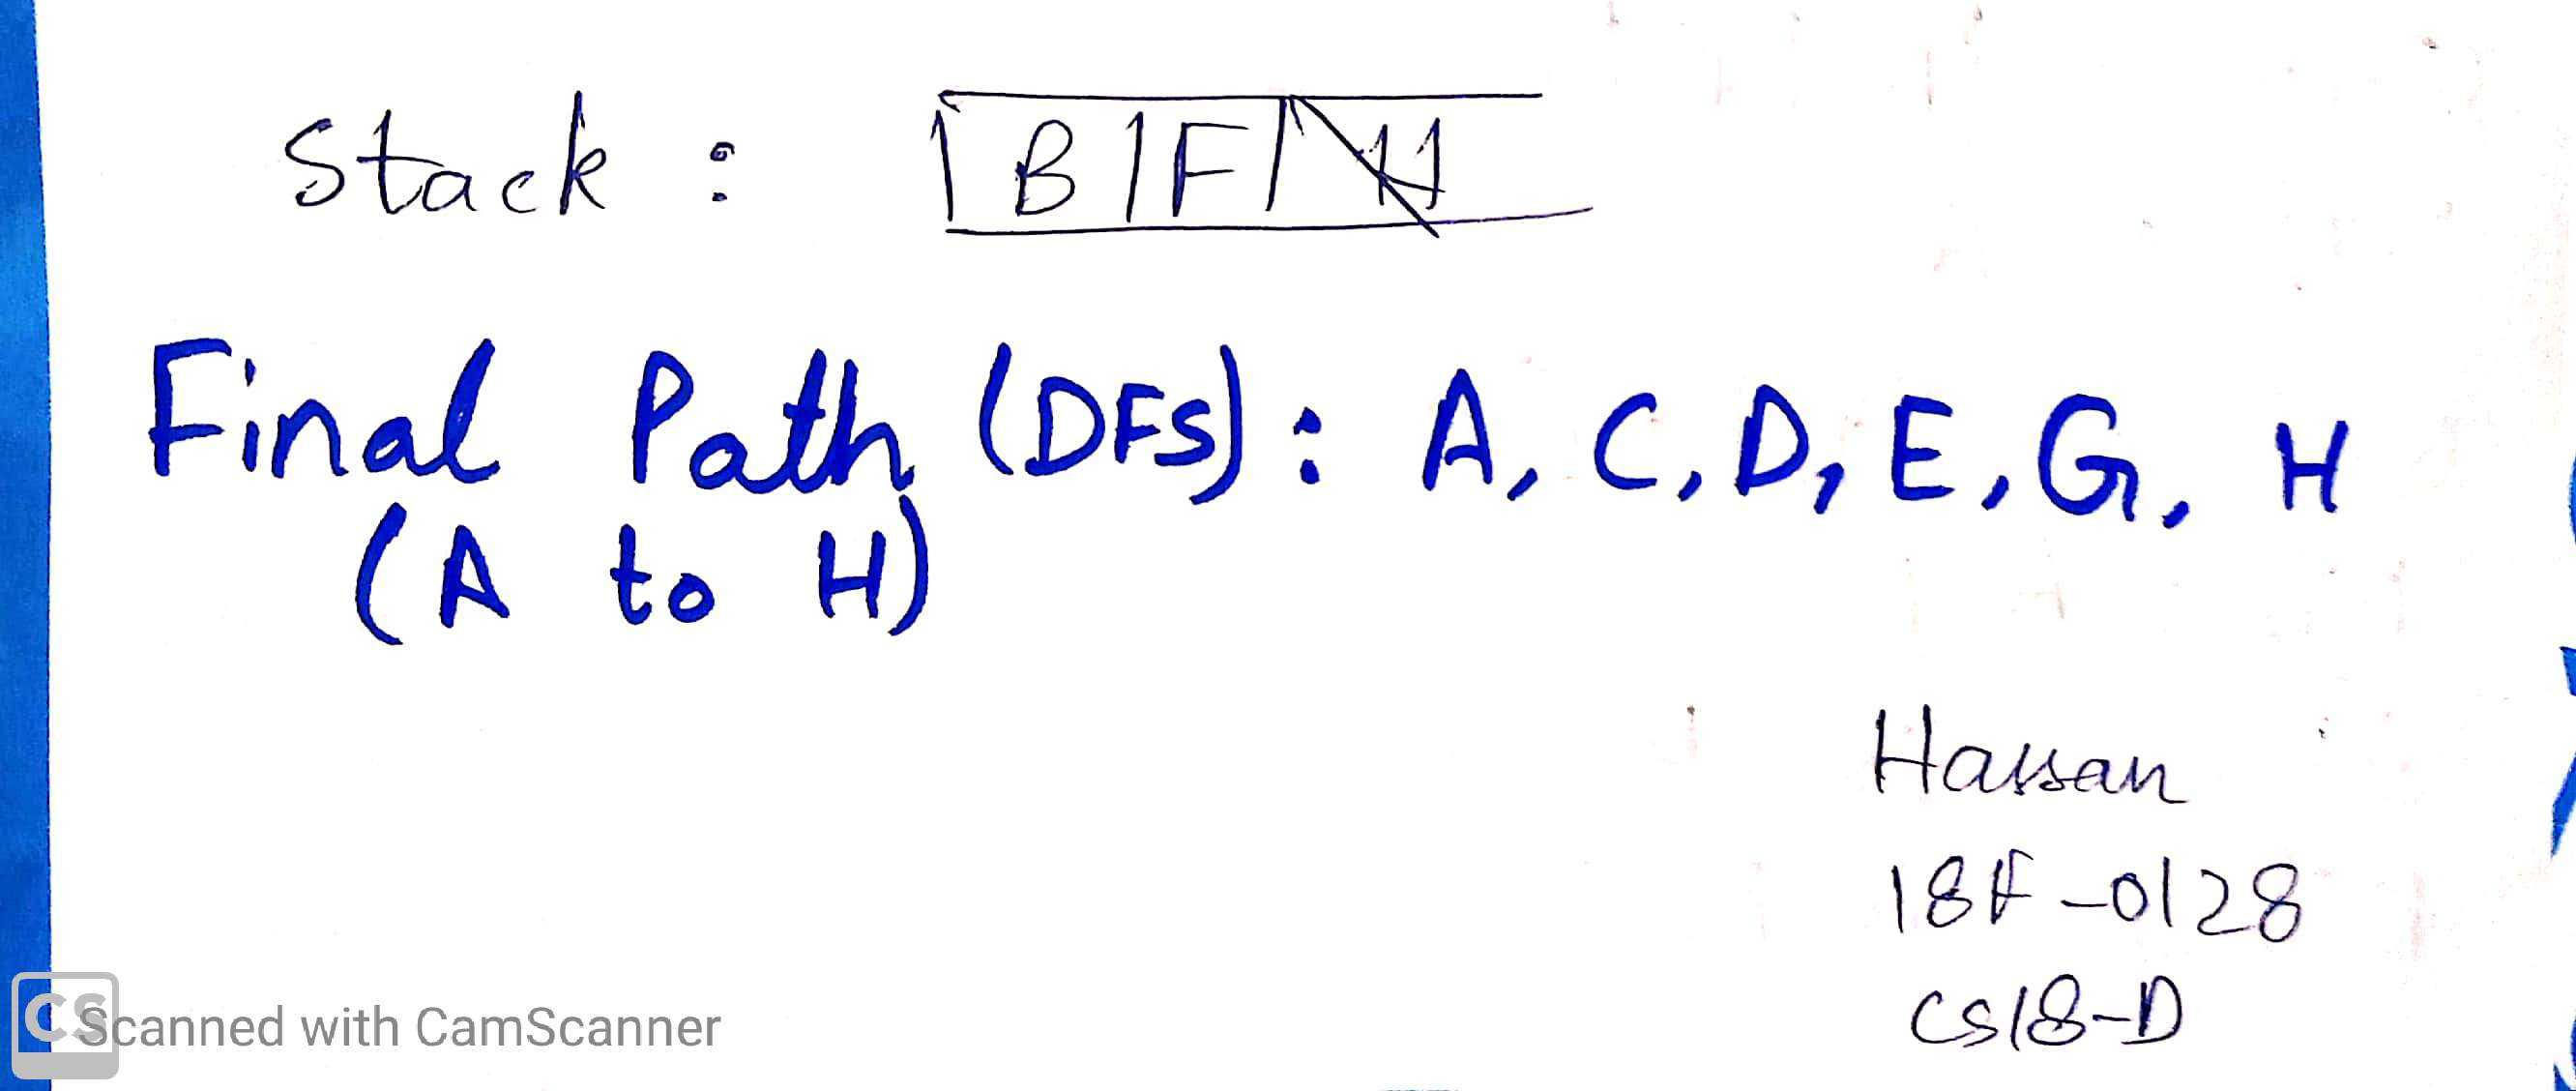 Stack : | B | F | H
Final Path (DFS) : A, C, D, E, G, H
(A to H)
Hassan
18F-0128
CS18-D
CS Scanned with CamScanner